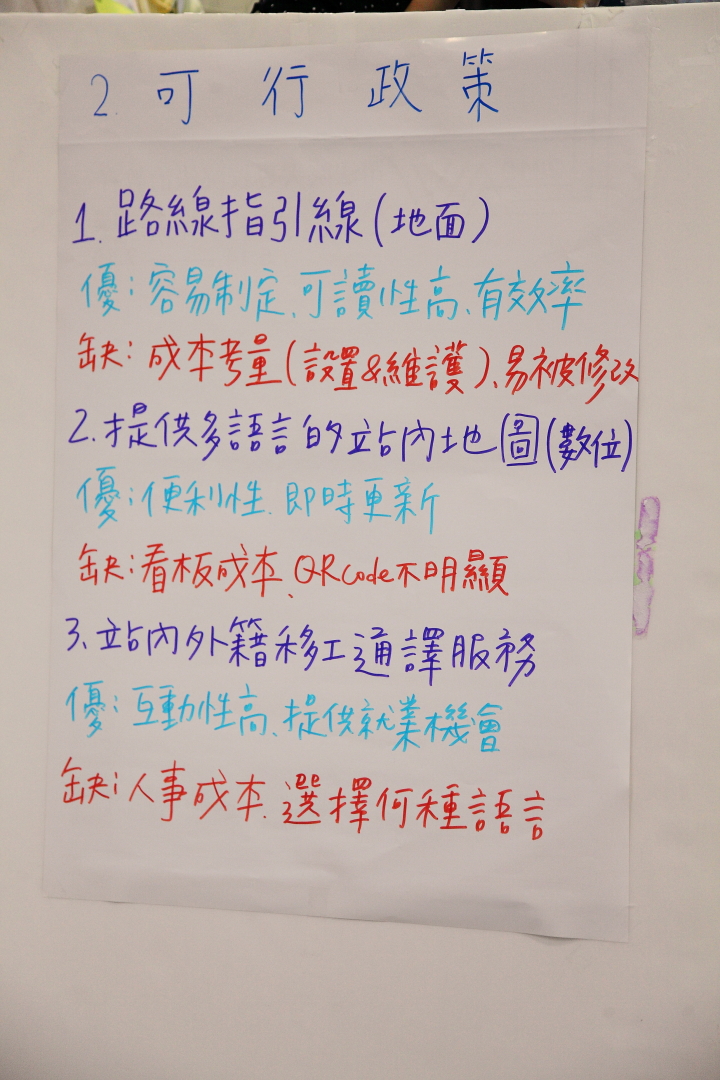 2. 可行政策
1. 路線指引線(地面)
優：容易制定、可讀性高、有效率
缺：成本考量(設置&維護)、易被修改
2. 提供多語言的站內地圖(數位)
優：便利性、即時更新
缺：看板成本、QRcode不明顯
3、站內外籍移工通譯服務
優：互動性高、提供就業機會
缺：人事成本、選擇何種語言